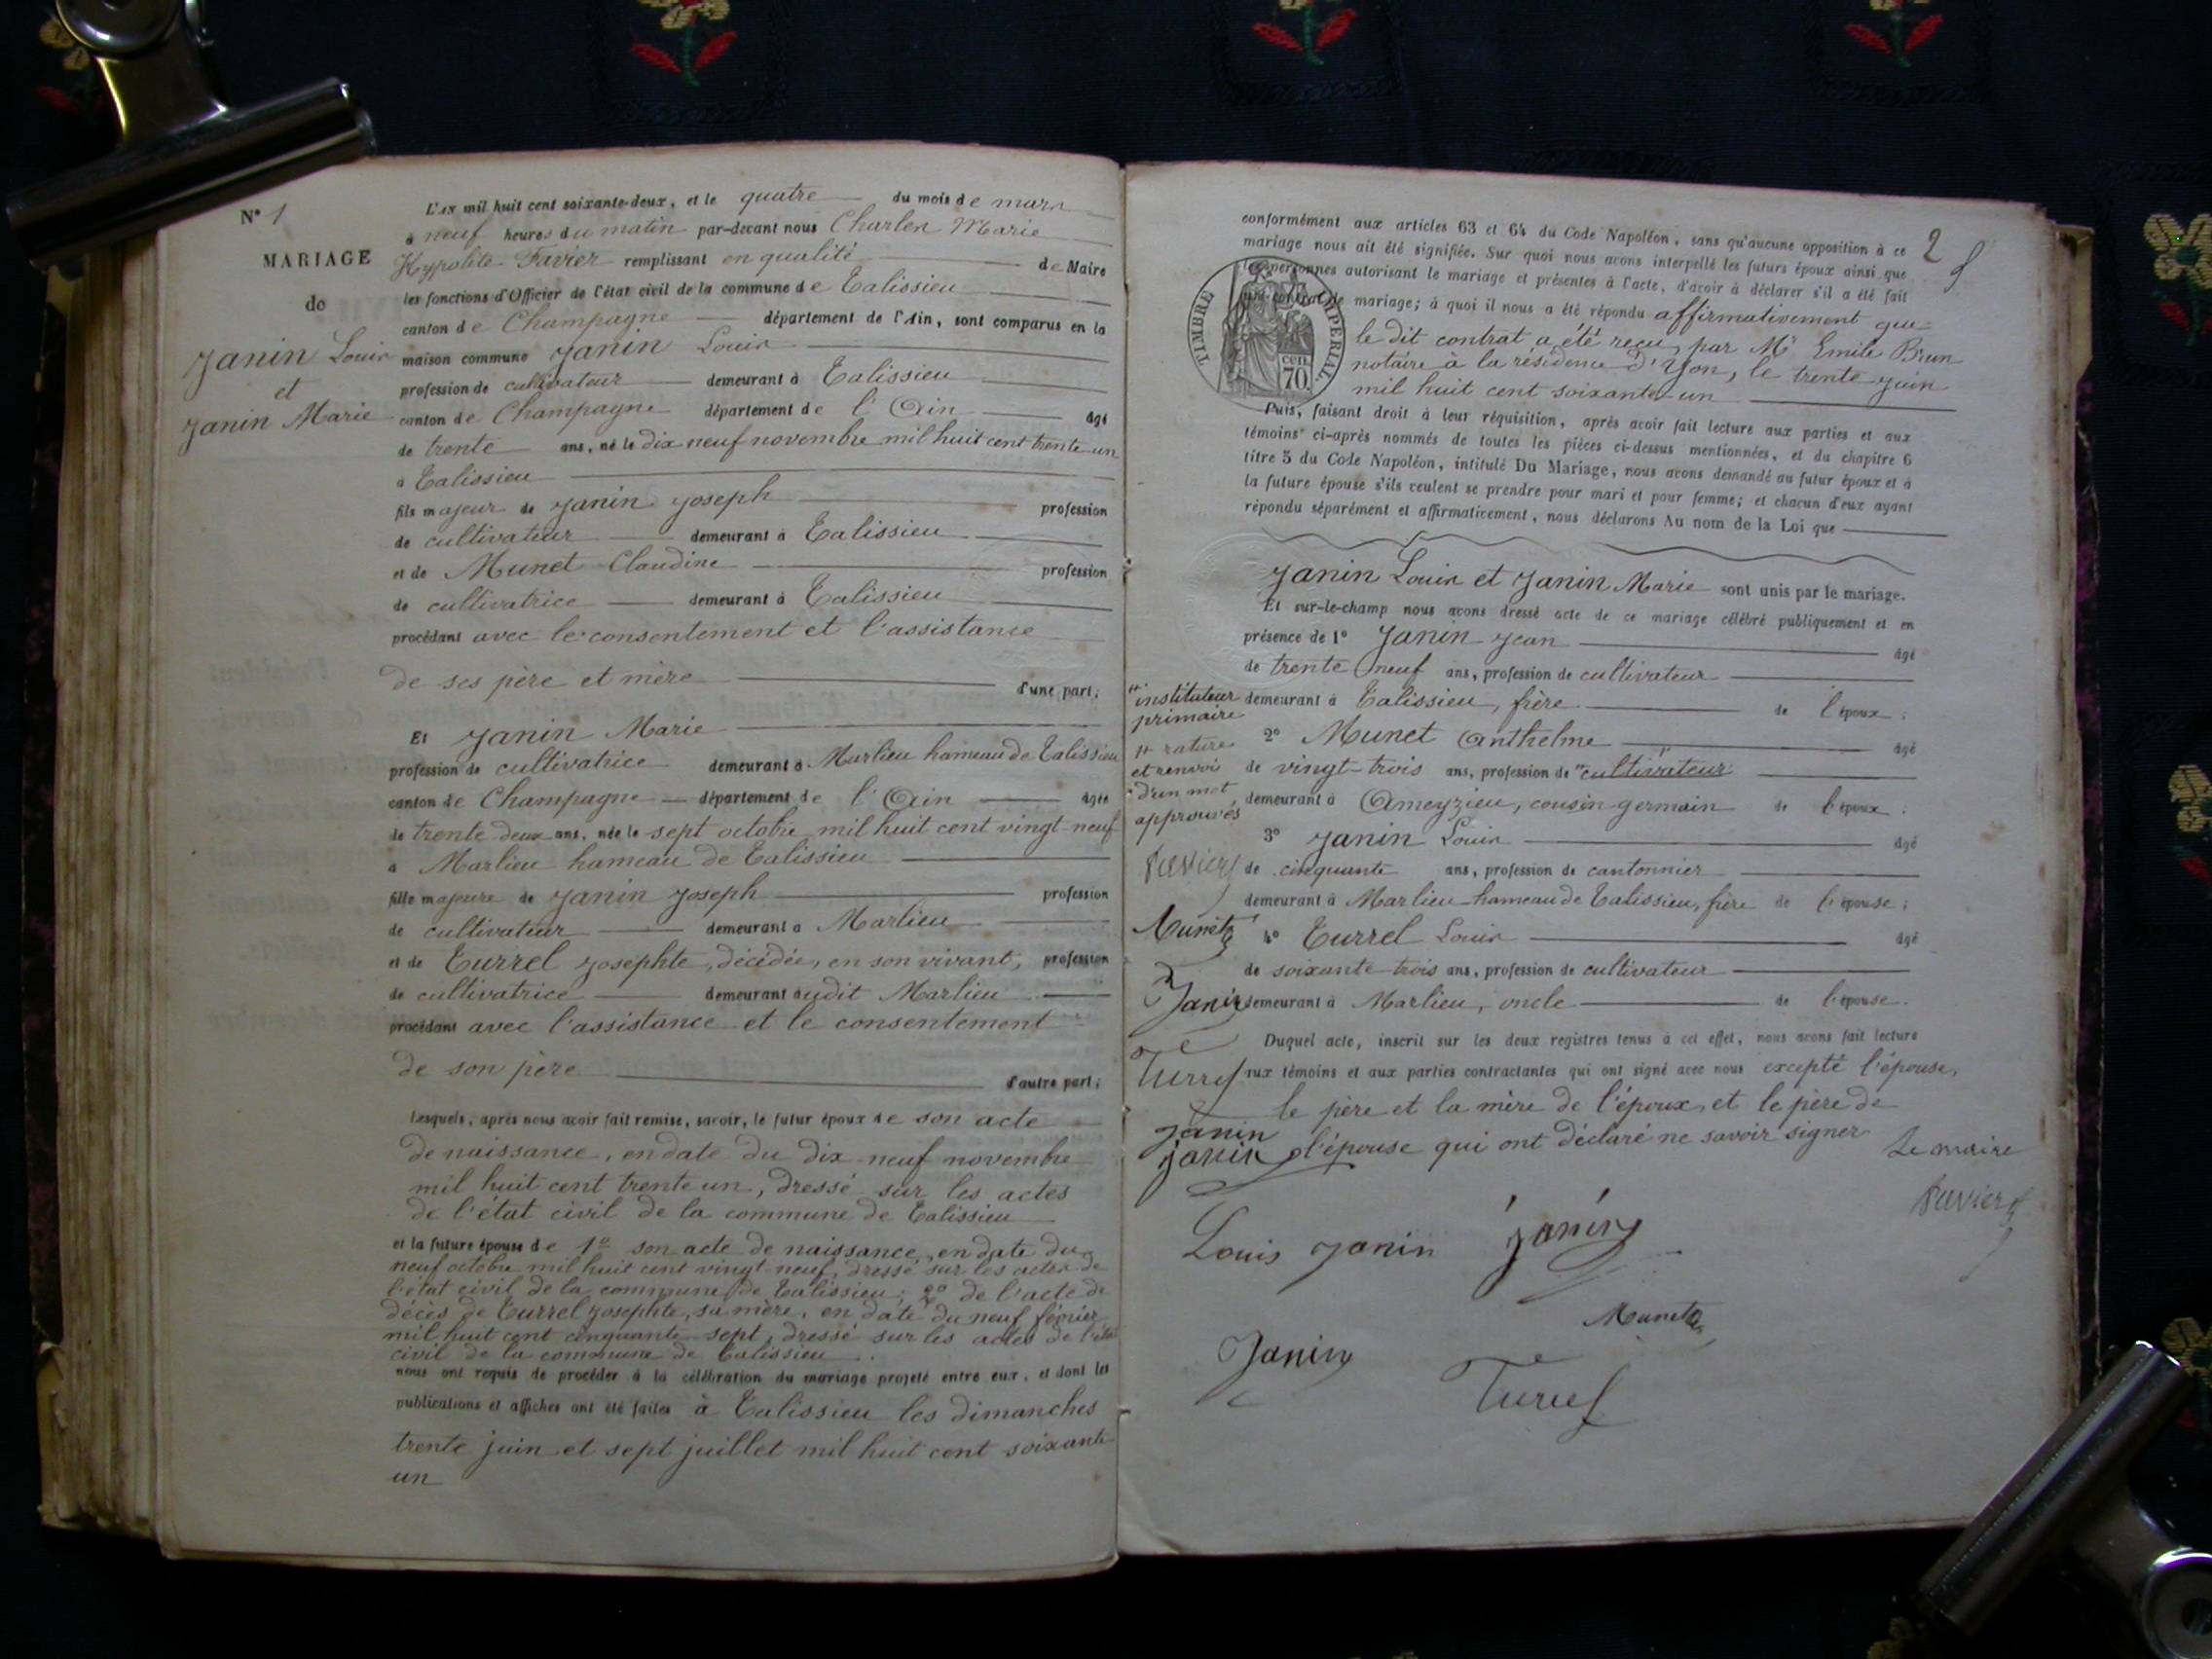 N° 1
MARIAGE
de
Janin Louis
et
Janin Marie
L'AN mil huit cent soixante-deux, et le quatre du mois de mars
à neuf heures du matin par-devant nous Charles Marie
Hyppolite Favier remplissant en qualité de Maire
les fonctions d'Officier de l'état civil de la commune de Talissieu
canton de Champagne département de l'Ain, sont comparus en la
maison commune Janin Louis
profession de cultivateur demeurant à Talissieu
canton de Champagne département de l'Ain âgé
de trente ans, né le dix neuf novembre mil huit cent trente-un
à Talissieu
fils majeur de Janin Joseph profession
de cultivateur demeurant à Talissieu
et de Munet Claudine profession
de cultivatrice demeurant à Talissieu
procédant avec le consentement et l'assistance
de ses père et mère d'une part;
Et Janin Marie
profession de cultivatrice demeurant à Marlieu hameau de Talissieu
canton de Champagne département de l'Ain âgée
de trente deux ans, née le sept octobre mil huit cent vingt-neuf
à Marlieu hameau de Talissieu
fille majeure de Janin Joseph profession
de cultivateur demeurant à Marlieu
et de Turrel Josephte, décédée, en son vivant, profession
de cultivatrice demeurant audit Marlieu
procédant avec l'assistance et le consentement
de son père d'autre part;
Lesquels, après nous avoir fait remise, savoir, le futur époux de son acte
de naissance, en date du dix-neuf novembre
mil huit cent trente un, dressé sur les actes
de l'état civil de la commune de Talissieu
et la future épouse de 1° son acte de naissance, en date du
neuf octobre mil huit cent vingt-neuf, dressé sur les actes de
l'état civil de la commune de Talissieu; 2° de l'acte de
décès de Turrel Josephte, sa mère, en date du neuf février
mil huit cent cinquante-sept, dressé sur les actes de l'état
civil de la commune de Talissieu.
nous ont requis de procéder à la célébration du mariage projeté entre eux, et dont les
publications et affiches ont été faites à Talissieu les dimanches
trente juin et sept juillet mil huit cent soixante
un
2
conformément aux articles 63 et 64 du Code Napoléon, sans qu'aucune opposition à ce
mariage nous ait été signifiée. Sur quoi nous avons interpellé les futurs époux ainsi que
les personnes autorisant le mariage et présentes à l'acte, d'avoir à déclarer s'il a été fait
un contrat de mariage; à quoi il nous a été répondu affirmativement que
TIMBRE IMPERIAL
cen. 70.
le dit contrat a été reçu par Me Emile Brun
notaire à la résidence d'Yon, le trente juin
mil huit cent soixante-un
Puis, faisant droit à leur réquisition, après avoir fait lecture aux parties et aux
témoins ci-après nommés de toutes les pièces ci-dessus mentionnées, et du chapitre 6
titre 5 du Code Napoléon, intitulé Du Mariage, nous avons demandé au futur époux et à
la future épouse s'ils veulent se prendre pour mari et pour femme; et chacun d'eux ayant
répondu séparément et affirmativement, nous déclarons Au nom de la Loi que
Janin Louis et Janin Marie sont unis par le mariage.
Et sur-le-champ nous avons dressé acte de ce mariage célébré publiquement et en
présence de 1° Janin Jean âgé
de trente neuf ans, profession de cultivateur
demeurant à Talissieu, frère de l'époux;
2° Munet Anthelme âgé
de vingt-trois ans, profession de cultivateur
demeurant à Ameyzieu, cousin germain de l'époux;
3° Janin Louis âgé
de cinquante ans, profession de cantonnier
demeurant à Marlieu hameau de Talissieu, frère de l'épouse;
4° Turrel Louis âgé
de soixante-trois ans, profession de cultivateur
demeurant à Marlieu, oncle de l'épouse.
instituteur
primaire
rature
et renvoi
d'un mot
approuvés
Favier
Munet
Janin
Turrel
Janin
Janin
Duquel acte, inscrit sur les deux registres tenus à cet effet, nous avons fait lecture
aux témoins et aux parties contractantes qui ont signé avec nous excepté l'épouse,
le père et la mère de l'époux, et le père de
l'épouse qui ont déclaré ne savoir signer
Le maire
Favier
Louis Janin Janin
Munet
Janin
Turrel